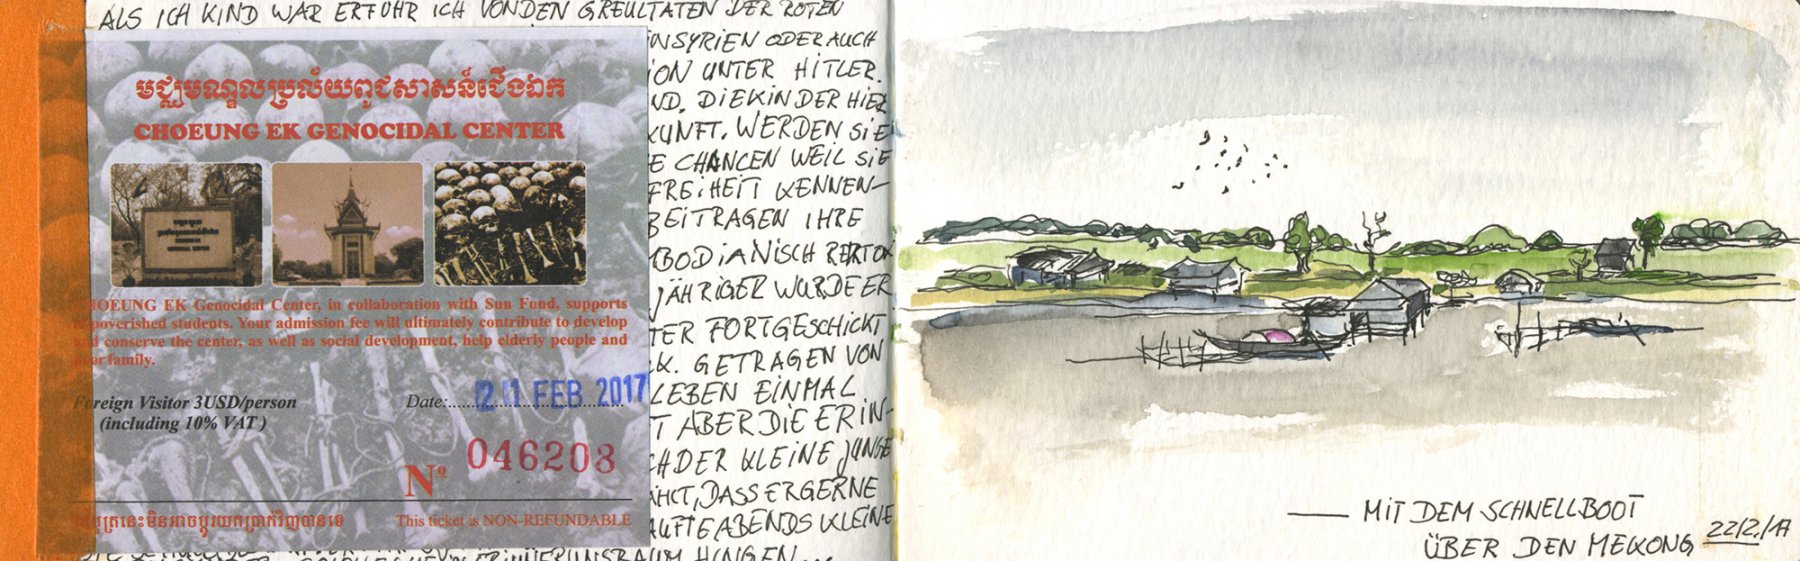 ALS ICH KIND WAR ERFUHR ICH VON DEN GREULTATEN DER ROTEN
មជ្ឈមណ្ឌលប្រល័យពូជសាសន៍ជើងឯក
CHOEUNG EK GENOCIDAL CENTER
CHOEUNG EK Genocidal Center, in collaboration with Sun Fund, supports
impoverished students. Your admission fee will ultimately contribute to develop
and conserve the center, as well as social development, help elderly people and
poor family.
Foreign Visitor 3USD/person
(including 10% VAT )
Date:........ 21 FEB 2017
Nº 046208
This ticket is NON-REFUNDABLE
NSYRIEN ODER AUCH
ION UNTER HITLER.
ND. DIE KINDER HIER
KUNFT. WERDEN SIE
E CHANCEN WEIL SIE
FREIHEIT KENNEN-
BEITRAGEN IHRE
BODIANISCH
JÄHRIGER WURDE ER
TER FORTGESCHICKT
K. GETRAGEN VON
LEBEN EINMAL
T ABER DIE ERIN-
CH DER KLEINE JUNGE
ÄHLT, DASS ER GERNE
AUFTE ABENDS KLEINE
HINGEN...
MIT DEM SCHNELLBOOT
ÜBER DEN MEKONG 22/2./17